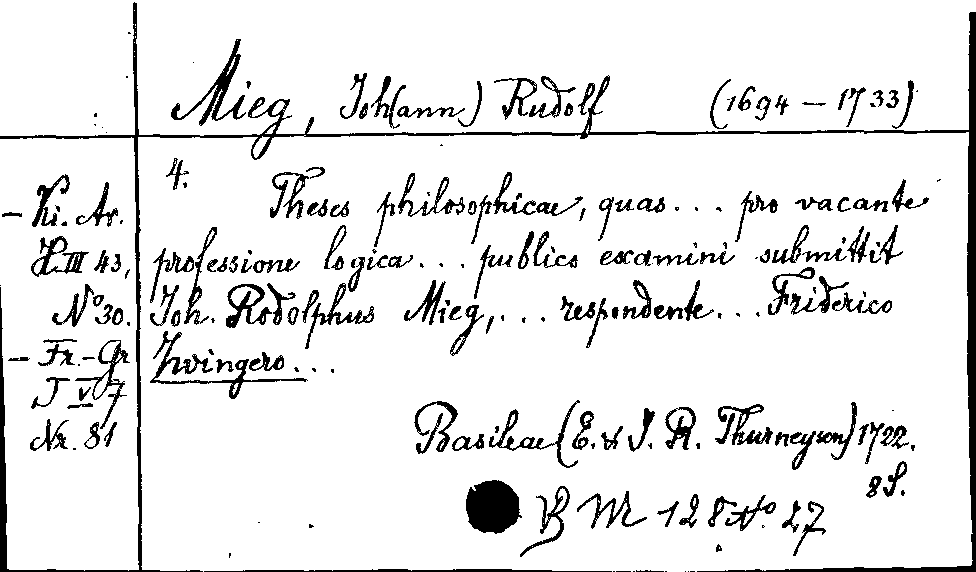 Mieg, Joh(ann) Rudolf (1694 – 1733)
4.
Theses philosophicae, quas... pro vacante
professione logica... publico examini submittit
Joh. Rodolphus Mieg,... respondente... Friderico
Zwingero...
Basileae (E. & J. R. Thurneysen) 1722.
8 S.
– Ki. Ar.
H. III 43,
No 30.
– Fr.-Gr
J V 7
Nr. 81
128 No. 27